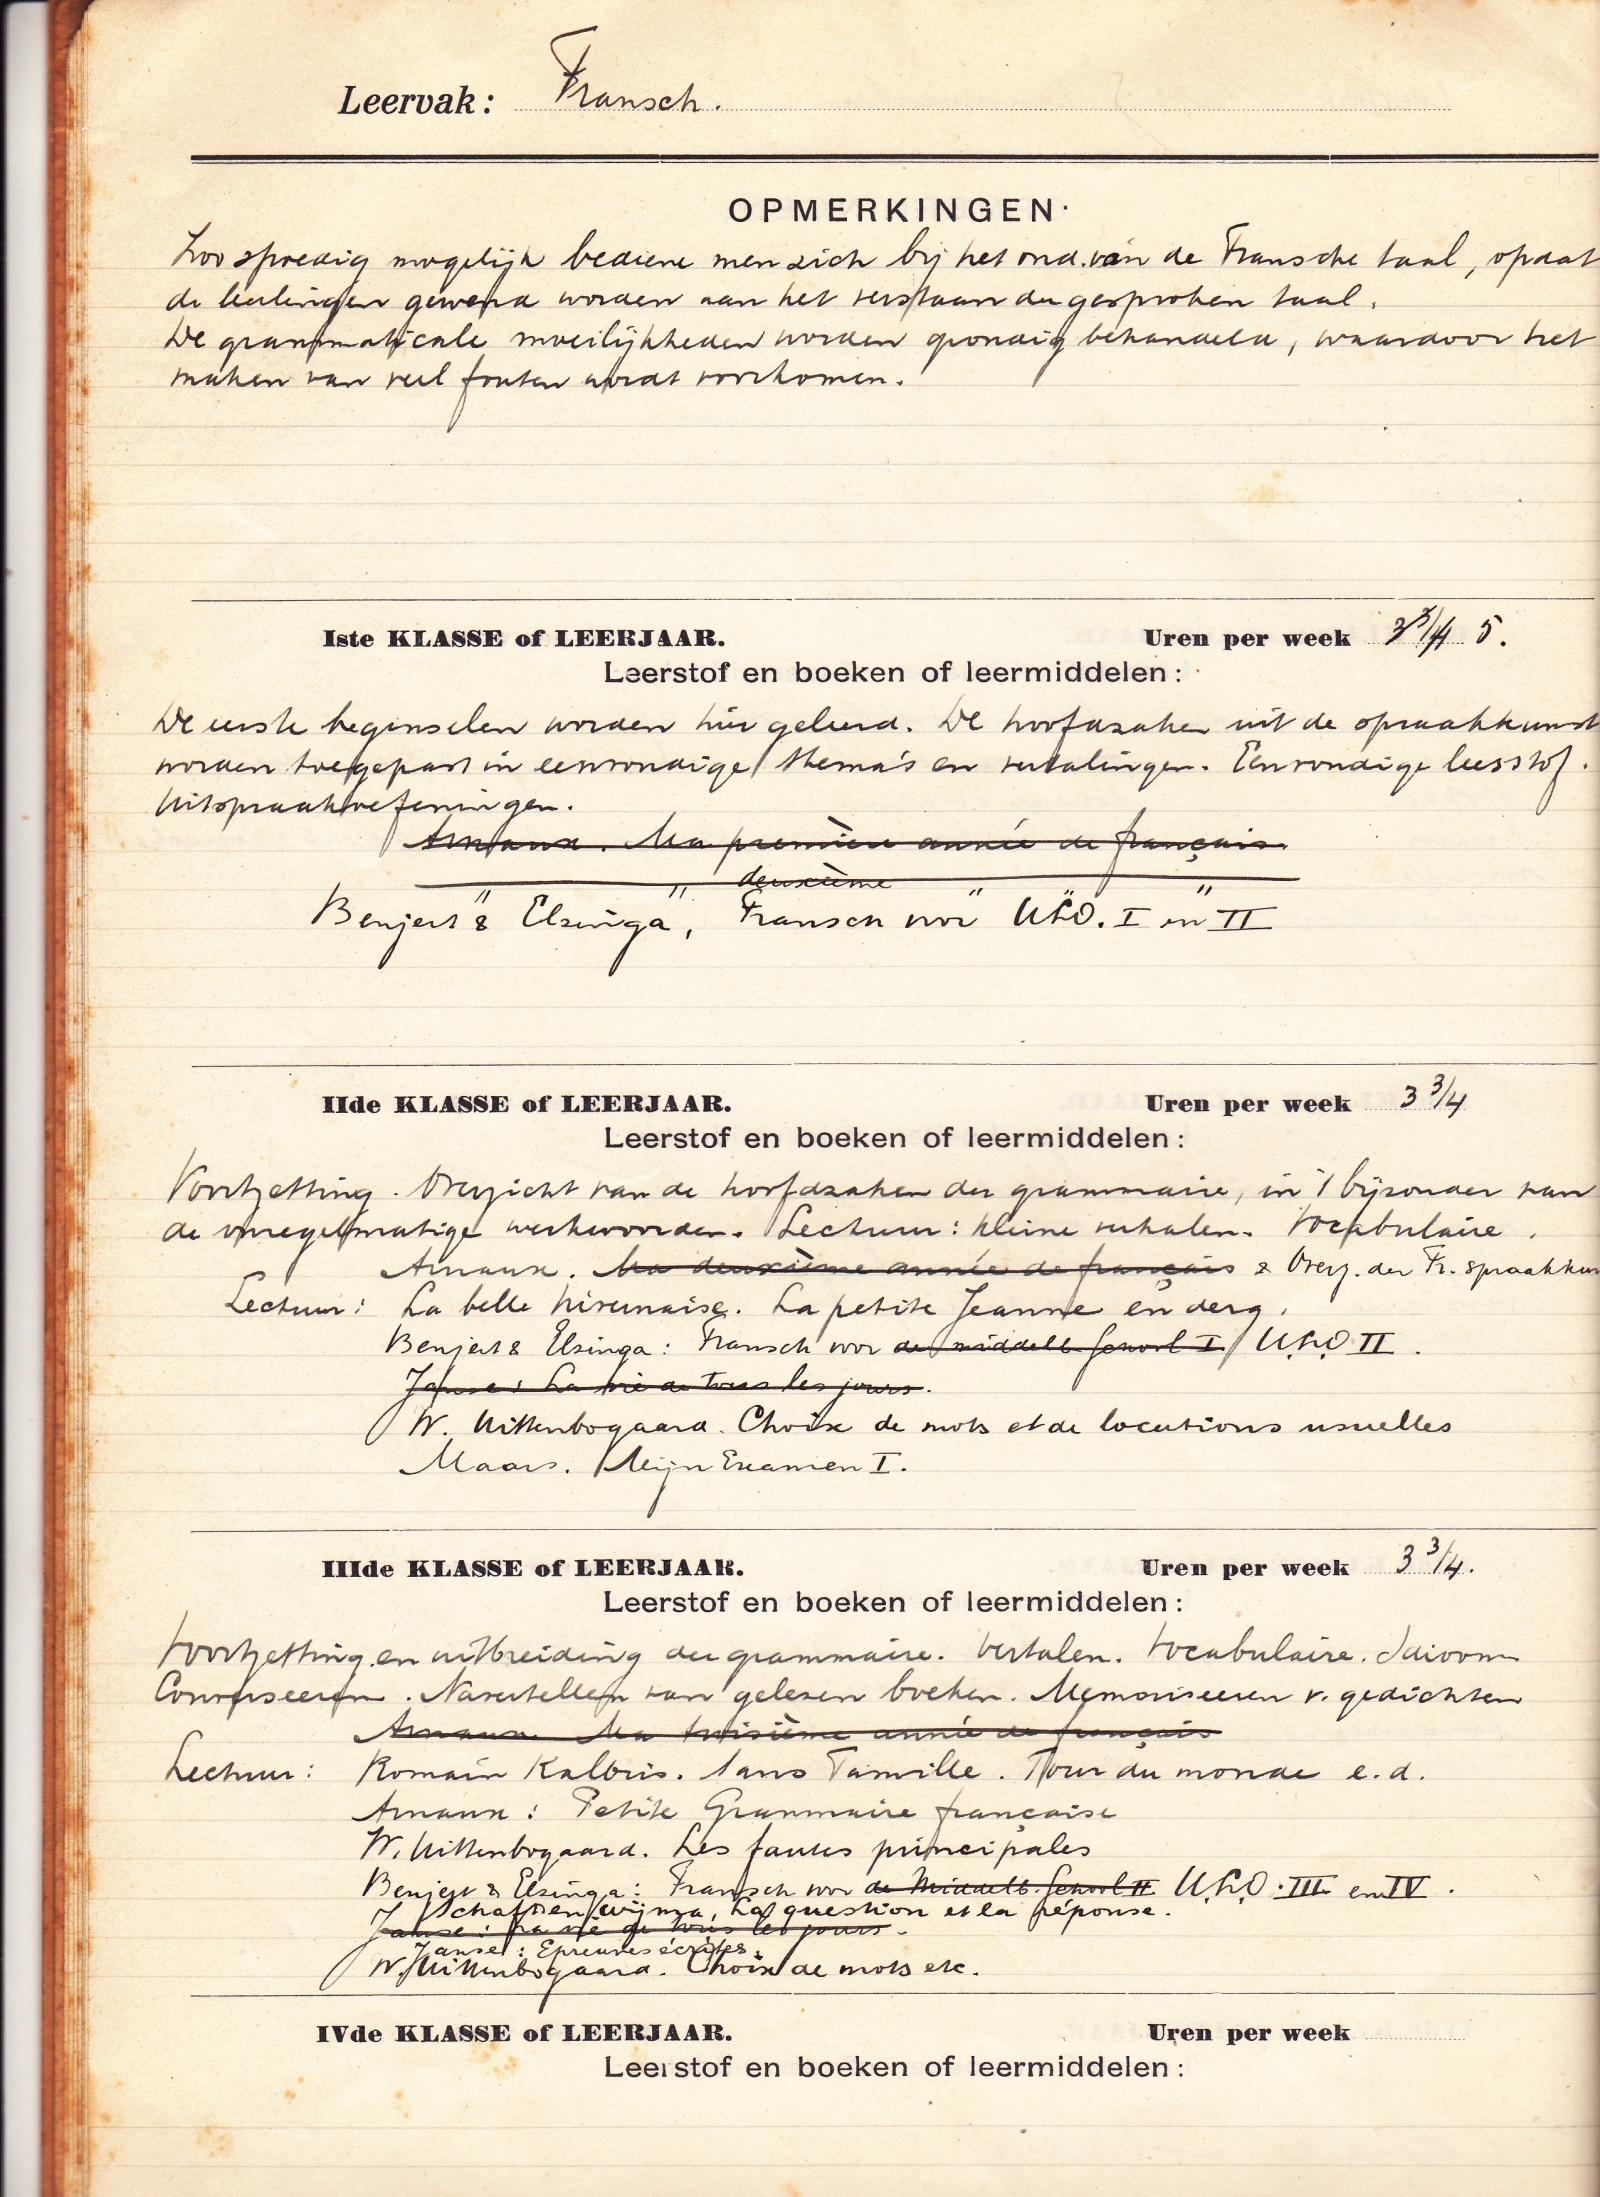 Leervak: Fransch.
OPMERKINGEN.
Zoo spoedig mogelijk bediene men zich bij het ond. van de Fransche taal, opdat
de leerlingen gewend worden aan het verstaan der gesproken taal.
De grammaticale moeilijkheden worden grondig behandeld, waardoor het
maken van veel fouten wordt voorkomen.
Iste KLASSE of LEERJAAR. Uren per week 3 3/4 5.
Leerstof en boeken of leermiddelen:
De eerste beginselen worden hier geleerd. De hoofdzaken uit de spraakkunst
worden toegepast in eenvoudige thema's en vertalingen. Eenvoudige leesstof.
Uitspraakoefeningen.
Arnaux. Ma première année de français
" " deuxième " " "
Benjert & Elzinga, Fransch voor ULO. I en II
IIde KLASSE of LEERJAAR. Uren per week 3 3/4
Leerstof en boeken of leermiddelen:
Voortzetting. Overzicht van de hoofdzaken der grammaire, in 't bijzonder van
de onregelmatige werkwoorden. Lectuur: kleine verhalen. Vocabulaire.
Arnaux. Ma deuxième année de français & Overz. der Fr. spraakkun
Lectuur: La belle Nivernaise. La petite Jeanne en derg.
Benjert & Elzinga: Fransch voor de middelb. School I U.L.O II.
Janse: La vie de tous les jours.
W. Uittenbogaard. Choix de mots et de locutions usuelles
Maars. Mijn Examen I.
IIIde KLASSE of LEERJAAR. Uren per week 3 3/4.
Leerstof en boeken of leermiddelen:
Voortzetting en uitbreiding der grammaire. Vertalen. Vocabulaire. Idioom
Converseeren. Navertellen van gelezen boeken. Memoriseeren v. gedichten
Arnaux. Ma troisième année de français
Lectuur: Romain Kalbris. Sans Famille. Tour du monde e.d.
Arnaux: Petite Grammaire française
W. Uittenbogaard. Les fautes principales
Benjert & Elzinga: Fransch voor de Middelb. School II U.L.O. III en IV.
Schaft en Wijma, La question et la réponse.
Janse: La vie de tous les jours.
Janse: Epreuves écrites.
W. Uittenbogaard. Choix de mots etc.
IVde KLASSE of LEERJAAR. Uren per week
Leerstof en boeken of leermiddelen: